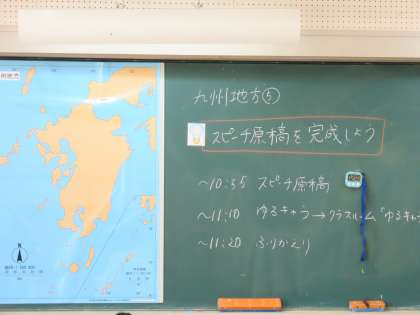 九州地方⑤
スピーチ原稿を完成しよう
~10:35 スピーチ原稿
~11:10 ゆるキャラ→クラスルーム「ゆるキャ
~11:20 ふりかえり